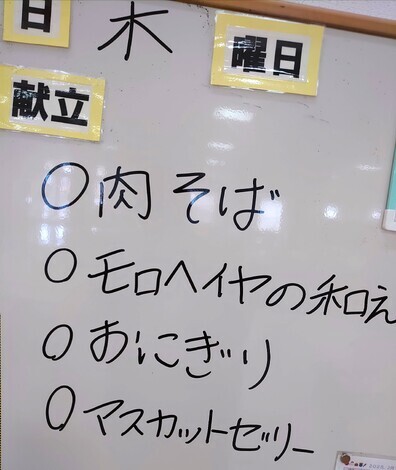 日 木 曜日
献立
○肉そば
○モロヘイヤの和え
○おにぎり
○マスカットゼリー